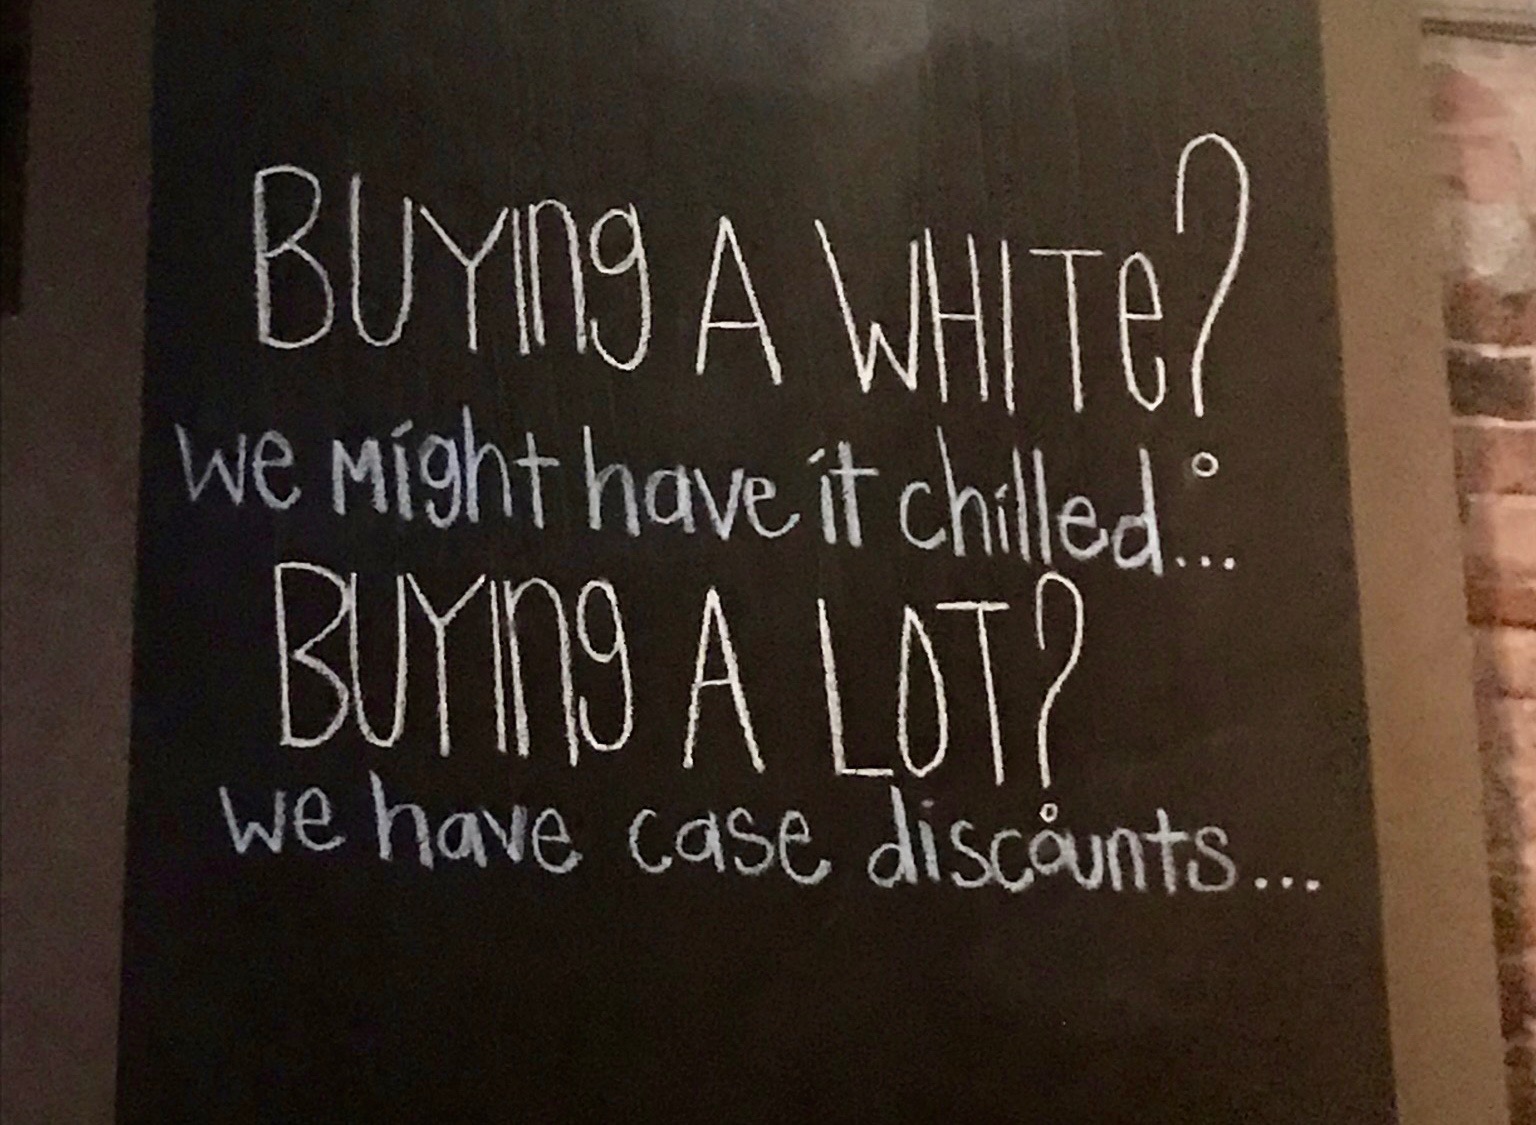 BUYIng A WHITe?
we might have it chilled...
BUYIng A LOT?
we have case discounts...